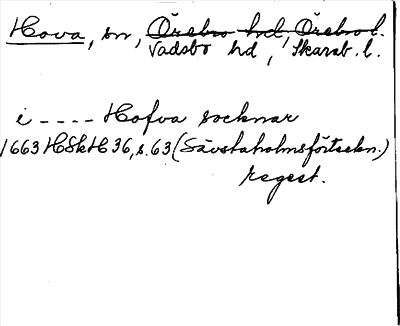 Hova, sn, Örebro hd, Örebro l.
Vadsbo hd, Skarab. l.
i ---- Hofva socknar
1663 HSkH 36, s. 63 (Säfstaholmsförteckn.)
regest.